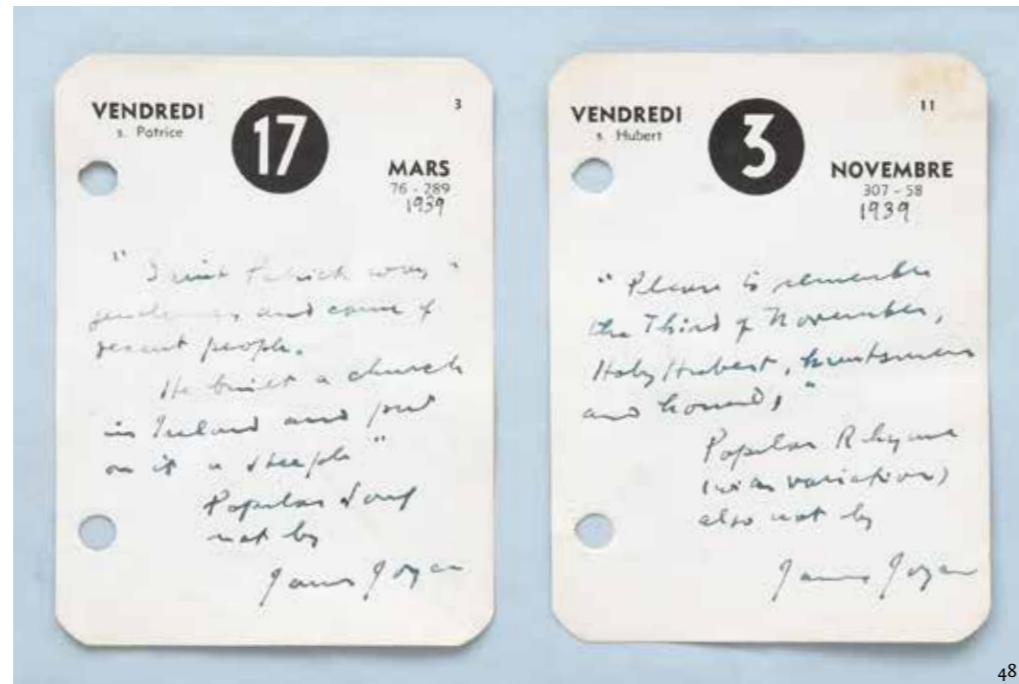 VENDREDI
s. Patrice
17
3
MARS
76 - 289
1939
"Saint Patrick was a
gentleman and came of
decent people.
He built a church
in Ireland and put
on it a steeple"
Popular Song
not by
James Joyce
VENDREDI
s. Hubert
3
11
NOVEMBRE
307 - 58
1939
"Please to remember
the Third of November,
Holy Hubert, huntsmen
and hounds,"
Popular Rhyme
(with variation)
also not by
James Joyce
48